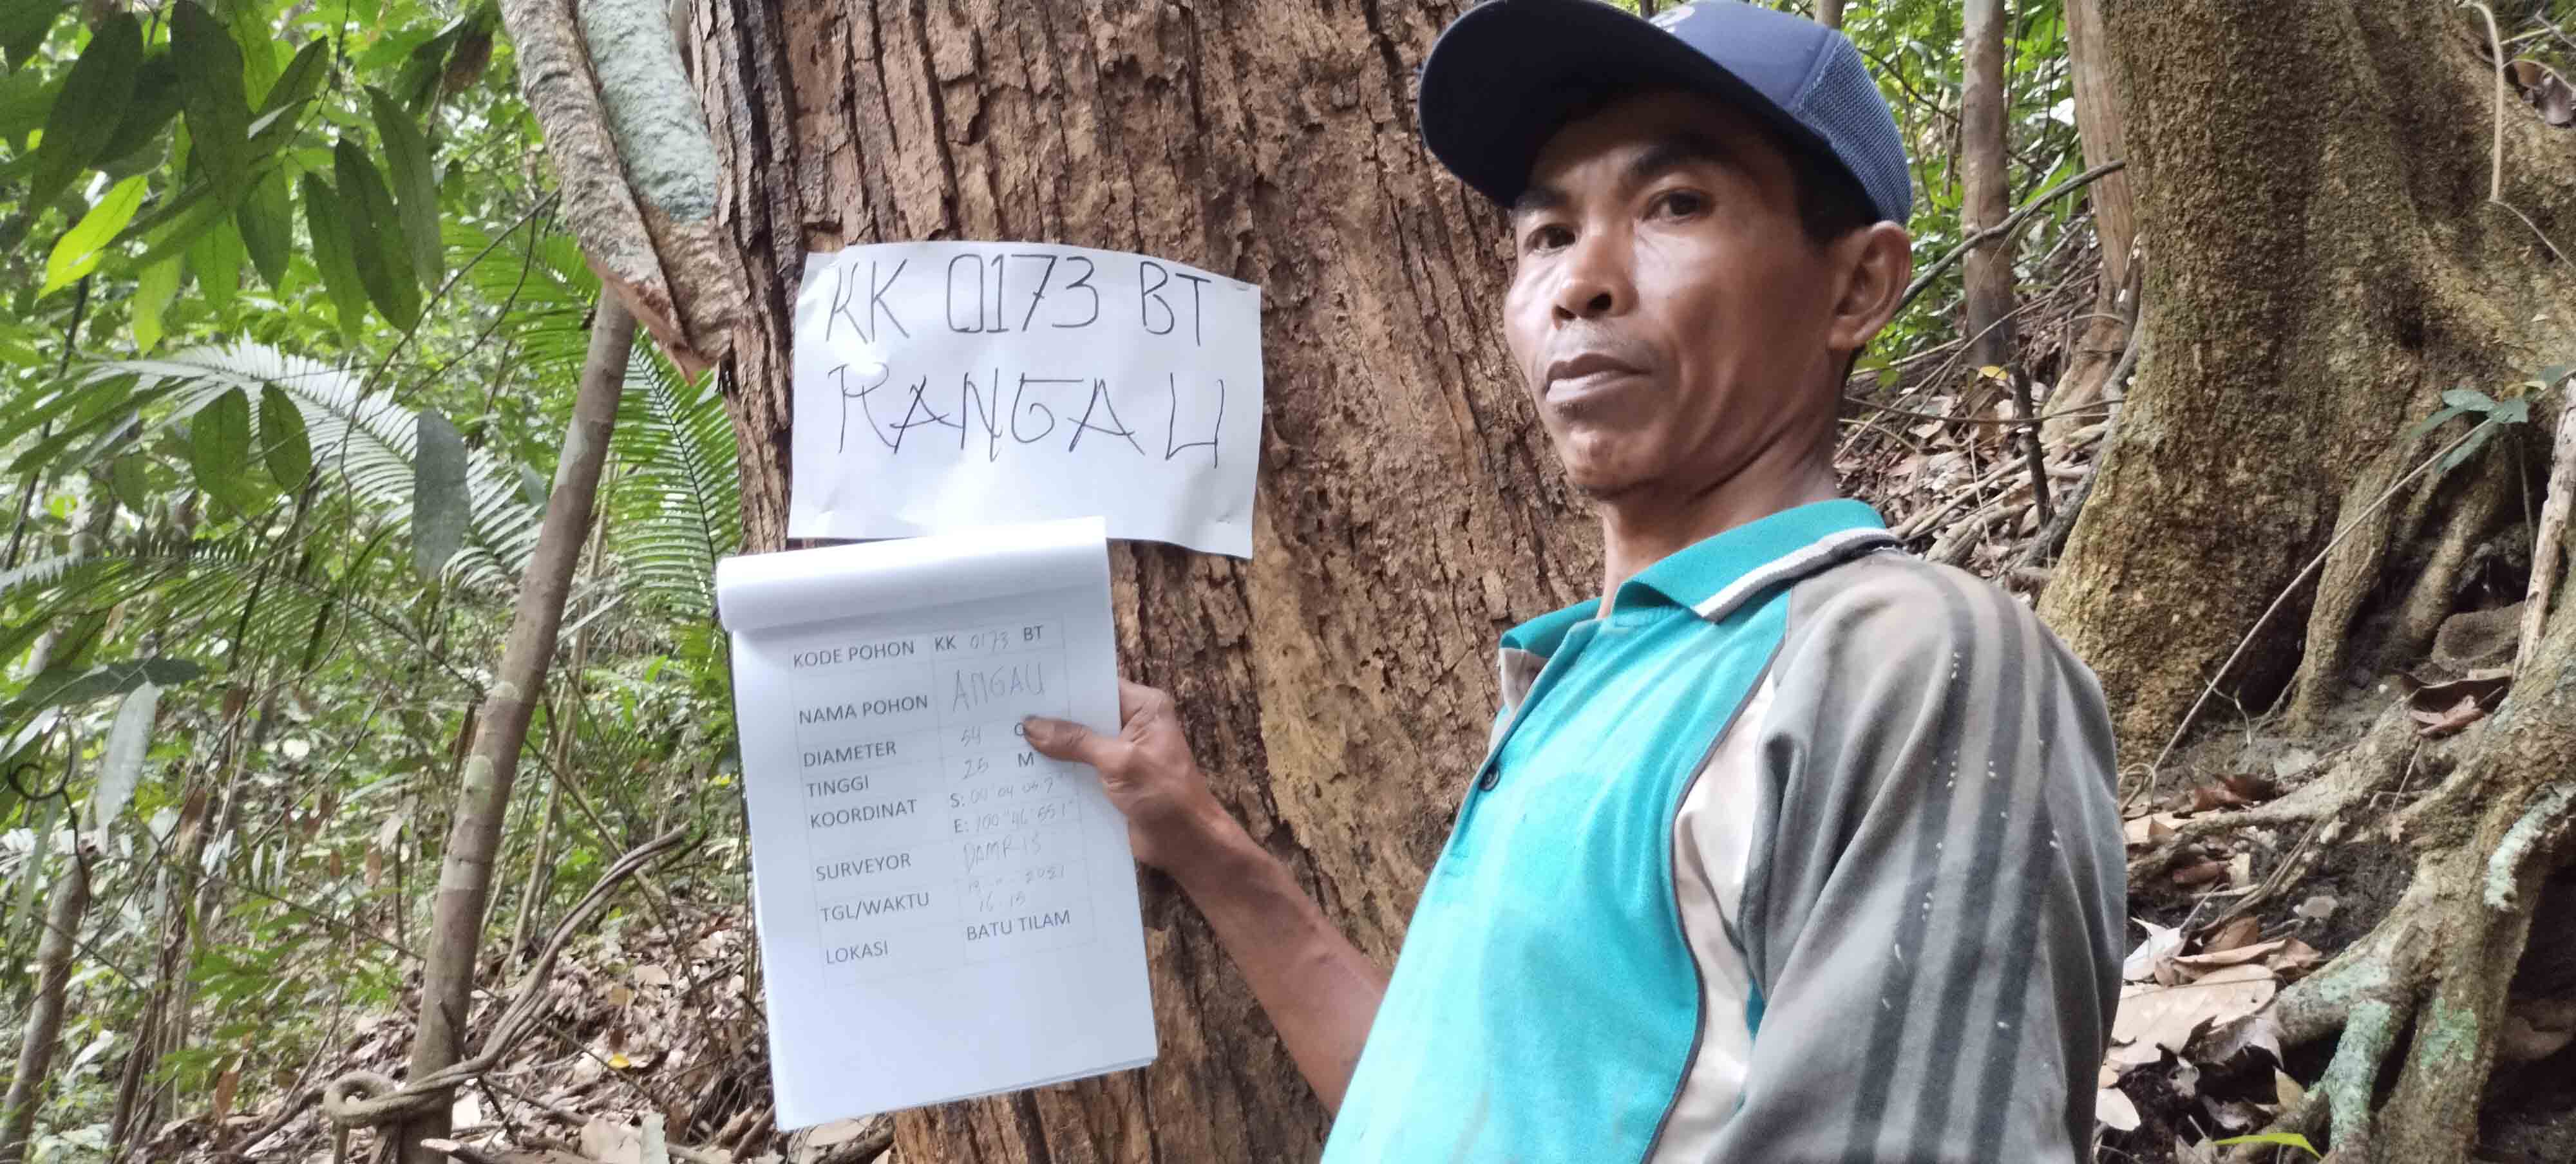 KK 0173 BT
RANGAU
KODE POHON KK 0173 BT
NAMA POHON ANGAU
DIAMETER 54
TINGGI 25 M
KOORDINAT S: 00° 04'
E: 100° 46' 55.1"
SURVEYOR DAMRIS
TGL/WAKTU 2021
16.15
LOKASI BATU TILAM